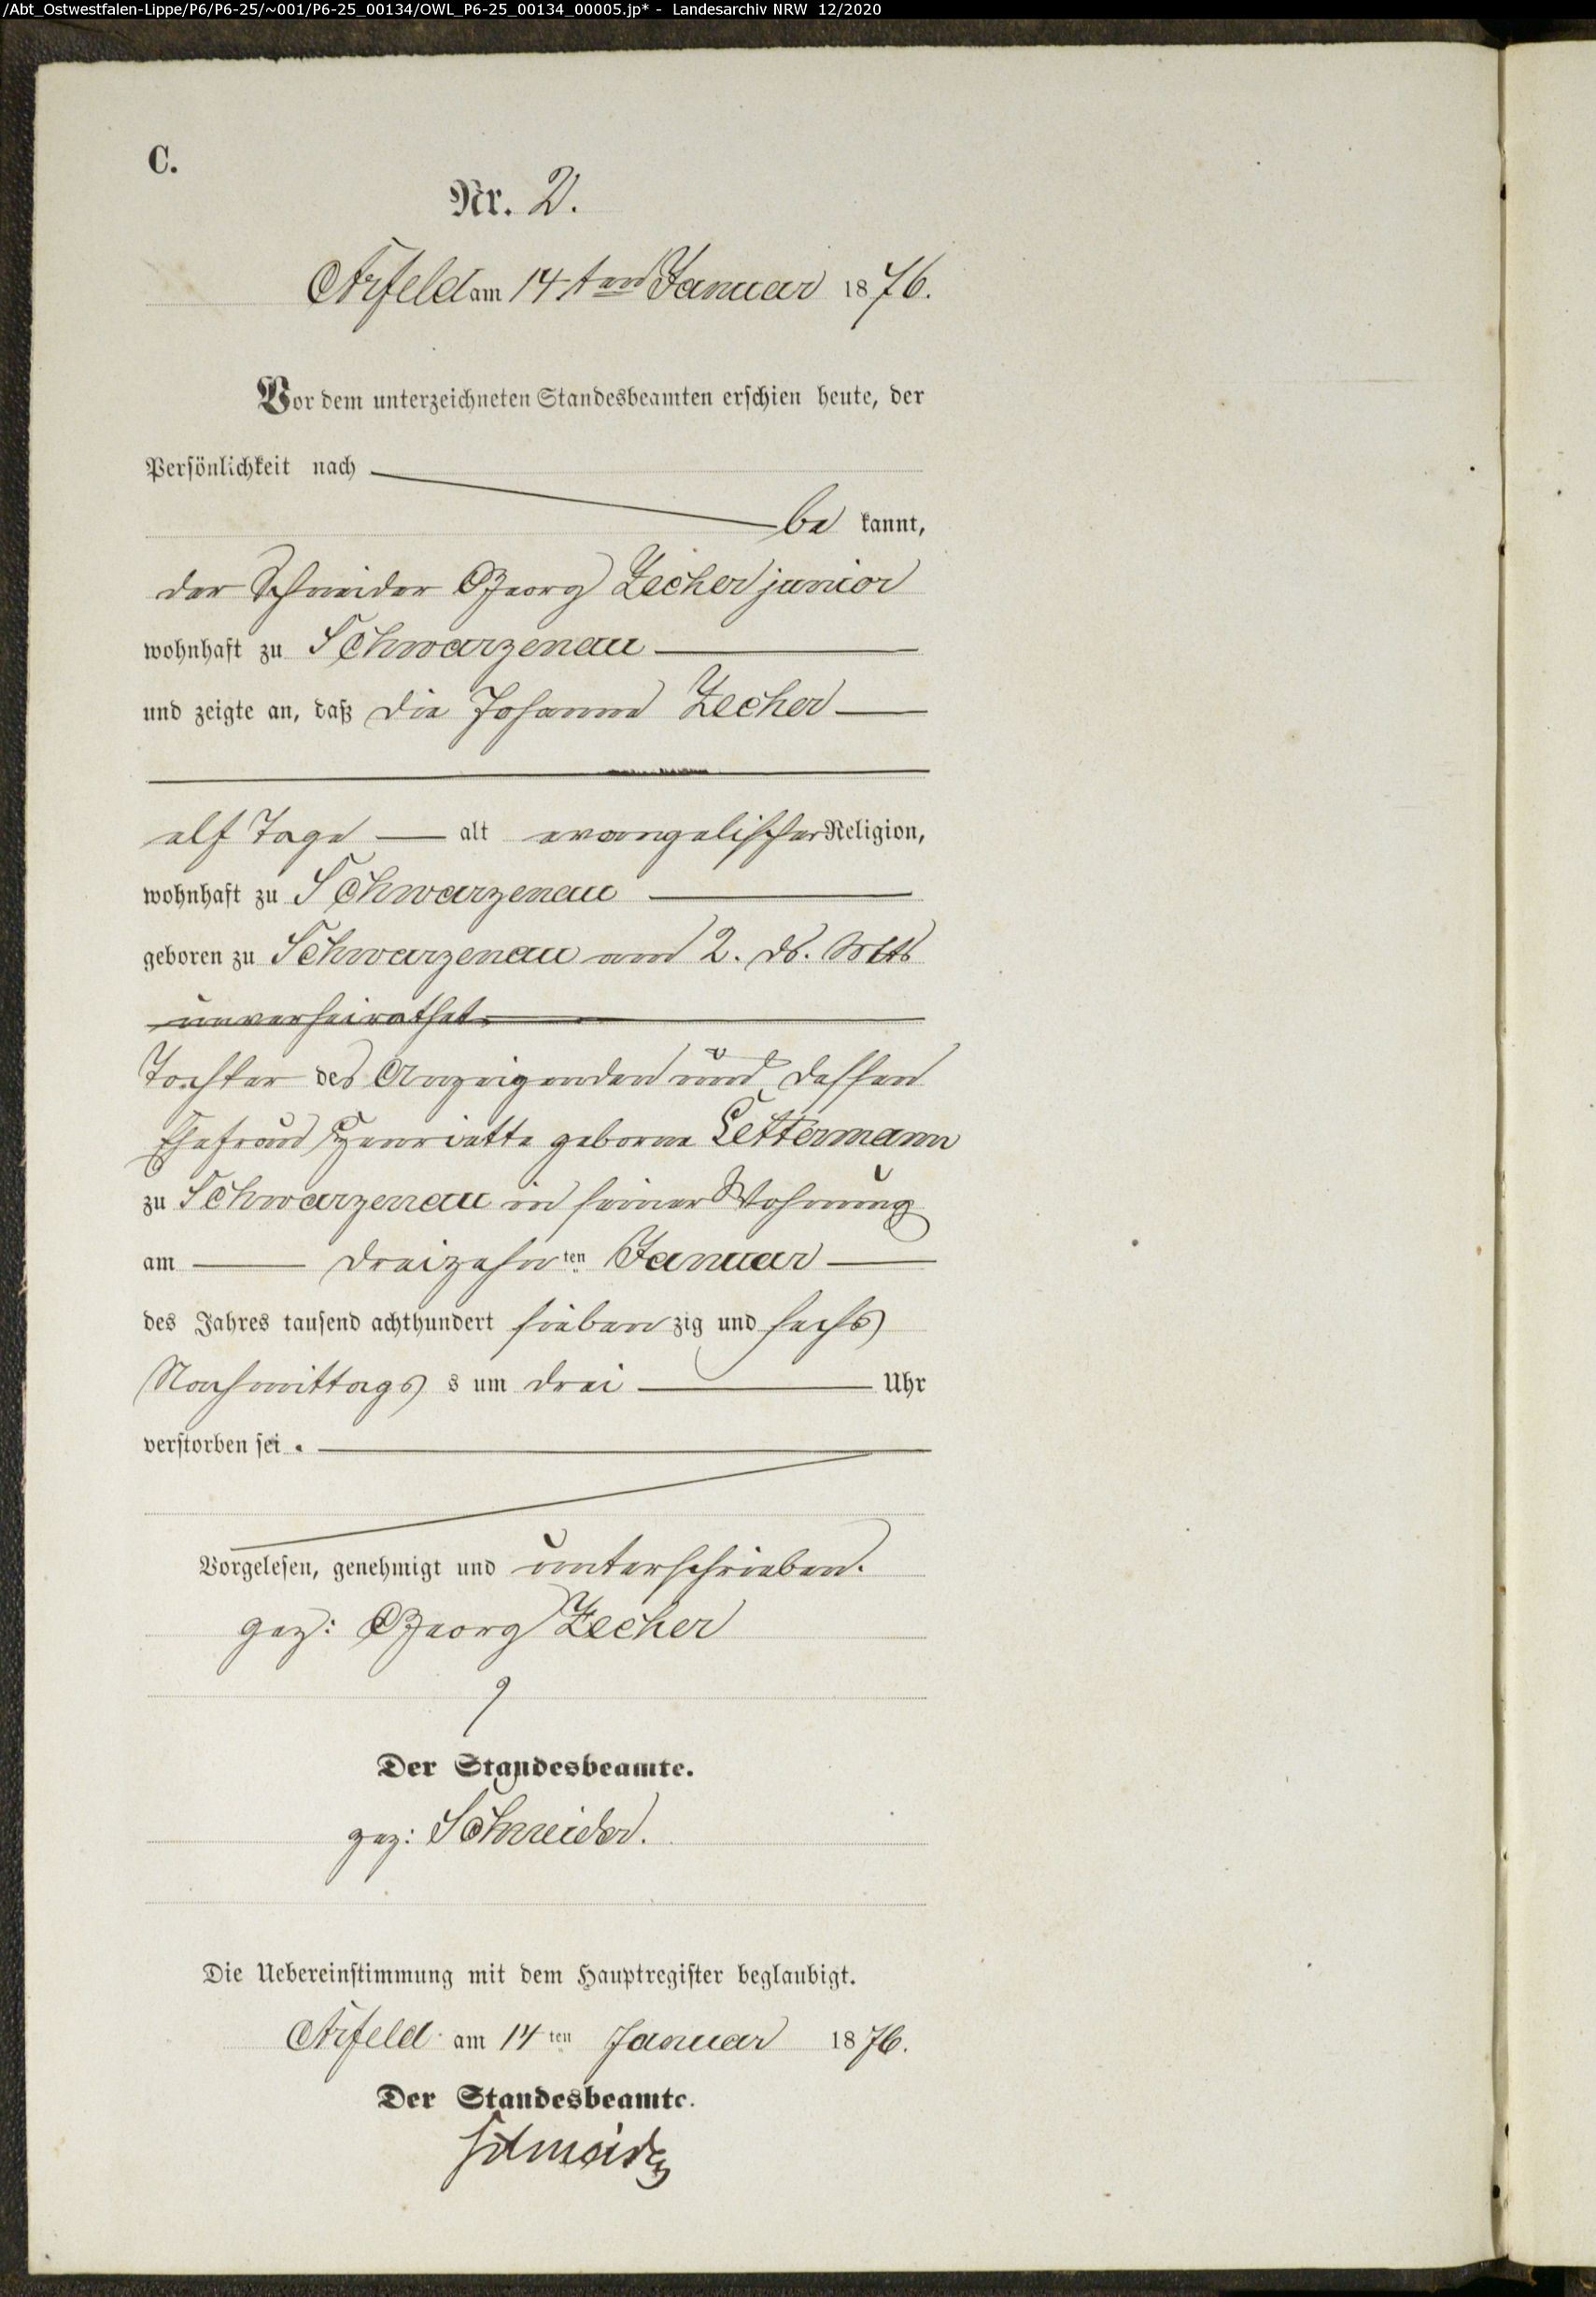 /Abt_Ostwestfalen-Lippe/P6/P6-25/~001/P6-25_00134/OWL_P6-25_00134_00005.jp* - Landesarchiv NRW 12/2020
C.
Nr. 2.
Arfeld am 14ten Januar 1876.
Vor dem unterzeichneten Standesbeamten erschien heute, der
Persönlichkeit nach
be kannt,
der Schneider Georg Zecher junior
wohnhaft zu Schwarzenau
und zeigte an, daß die Johanne Zecher
elf Tage alt evangelischer Religion,
wohnhaft zu Schwarzenau
geboren zu Schwarzenau am 2. ds. Mts
unverheirathet
Tochter des Anzeigenden und dessen
Ehefrau Henriette geborne Lettermann
zu Schwarzenau in seiner Wohnung
am dreizehnten Januar
des Jahres tausend achthundert sieben zig und sechs
Nachmittags s um drei Uhr
verstorben sei.
Vorgelesen, genehmigt und unterschrieben.
gez: Georg Zecher
Der Standesbeamte.
gez: Schneider.
Die Uebereinstimmung mit dem Hauptregister beglaubigt.
Arfeld am 14ten Januar 1876.
Der Standesbeamte.
Schneider